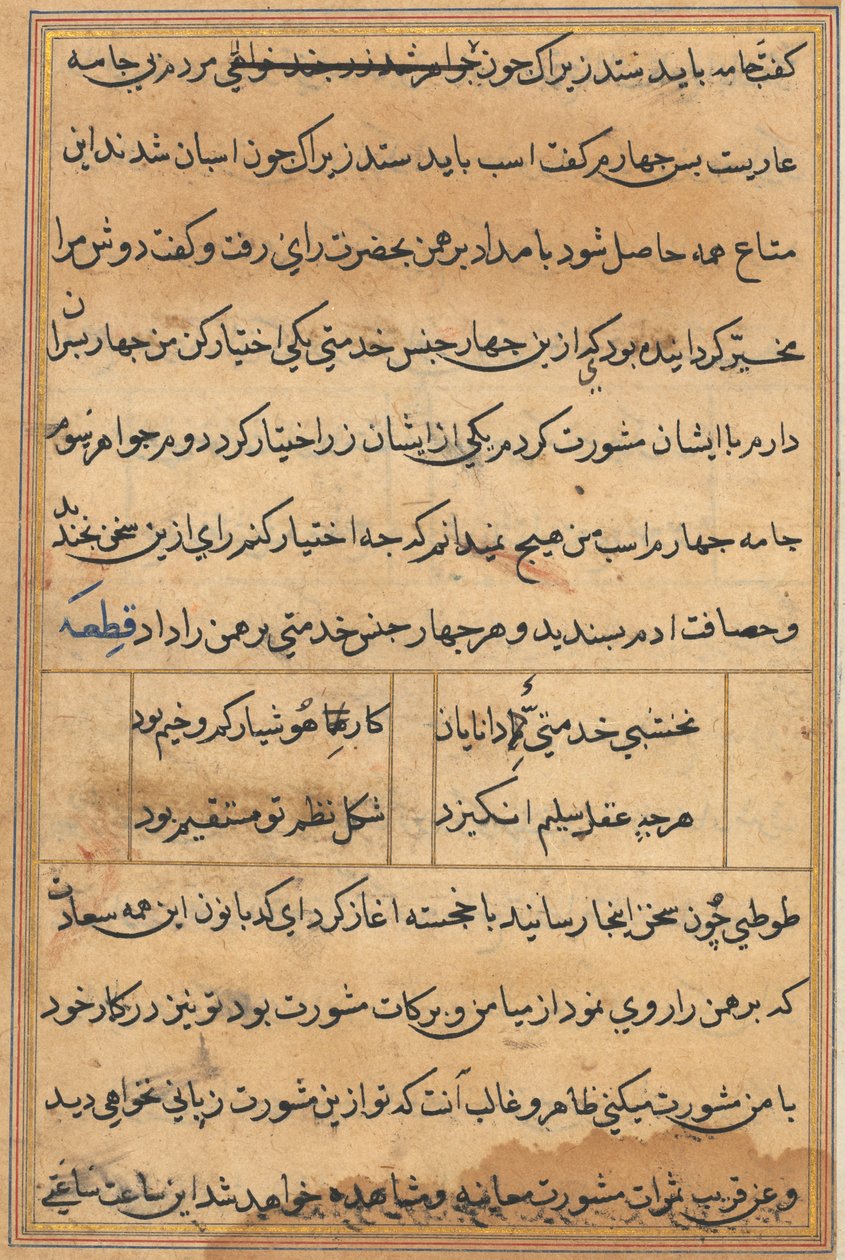 کفت جامه باید ستد زیراک جون جواهر شد زر جند خواهی مردم بی جامه
عاریست بس جهارم کفت اسب باید ستد زیراک جون اسبان شدند این
متاع همه حاصل شود بامداد برهمن بحضرت رای رفت و کفت دوش مرا
مخیّر کردانیده بودکی ازین جهار جنس خدمتی یکی اختیار کن من جهار بسران
دارم با ایشان مشورت کردم یکی از ایشان زر اختیار کرد دوم جواهر سوم
جامه جهارم اسب من هیج نمیدانم که جه اختیار کنم رای ازین سخن بخندید
و حصافت ادم بسندید و هر جهار جنس خدمتی برهمن را داد قطعه
نخشبی خدمتی دانایان
کارها هُوشیار کم وخیم بود
هر جه عقل سلیم انکیزد
شکل نظم تو مستقیم بود
طوطی چُون سخن اینجا رسانید با خجسته اغاز کرد ای کدبانون این همه سعادت
که برهمن را روی نمود از میامن و برکات مشورت بود تو نیز در کار خود
با من مشورت میکنی ظاهر و غالب آنت که تو ازین مشورت زیانی نخواهی دید
و عن قریب ثمرات مشورت معاینه و مشاهده خواهد شد این ساعت ساعتی